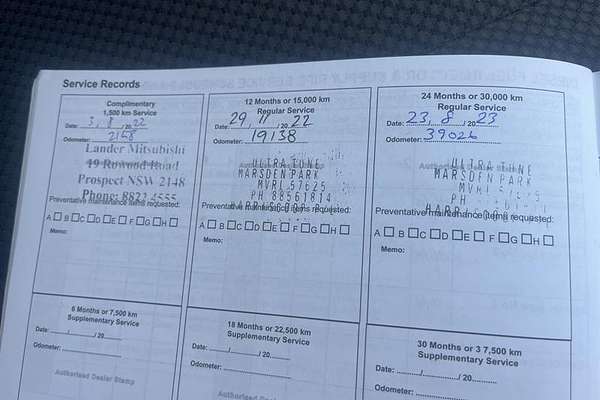 Service Records
Complimentary
1,500 km Service
Date: 3, 8, 20 22
Odometer: 2168
Lander Mitsubishi
19 Rowood Road
Prospect NSW 2148
Phone:
Preventative maintenance items requested:
A □ B □ C □ D □ E □ F □ G □ H □
Memo:
12 Months or 15,000 km
Regular Service
Date: 29, 11, 20 22
Odometer: 19138
ULTRA TUNE
MARSDEN PARK
MVRL 57625
PH 88561814
Preventative maintenance items requested:
A □ B □ C □ D □ E □ F □ G □ H □
Memo:
24 Months or 30,000 km
Regular Service
Date: 23, 8, 20 23
Odometer: 39026
ULTRA TUNE
MARSDEN PARK
Preventative maintenance items requested:
A □ B □ C □ D □ E □ F □ G □ H □
Memo:
6 Months or 7,500 km
Supplementary Service
Date: ....../....../ 20......
Odometer: ..................
Authorised Dealer Stamp
18 Months or 22,500 km
Supplementary Service
Date: ....../....../ 20......
Odometer: ..................
Authorised Dealer
30 Months or 3 7,500 km
Supplementary Service
Date: ....../....../ 20......
Odometer: ..................